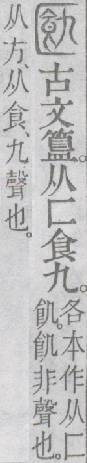 古文簋。从匚食九。
各本作从匚
飢。飢非聲也。
从方、从食、九聲也。